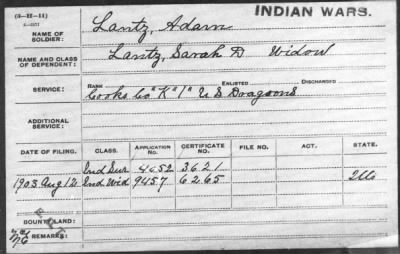 (3-22-11)
INDIAN WARS.
NAME OF SOLDIER: Lantz, Adam
NAME AND CLASS OF DEPENDENT: Lantz, Sarah D Widow
RANK ENLISTED DISCHARGED
SERVICE: Cooks Co "K" 1" U S Dragoons
ADDITIONAL SERVICE:
DATE OF FILING. CLASS. APPLICATION NO. CERTIFICATE NO. FILE NO. ACT. STATE.
Ind Sur 4652 3621
1903 Aug 12 Ind Wid 9457 6265
BOUNTY LAND:
REMARKS: